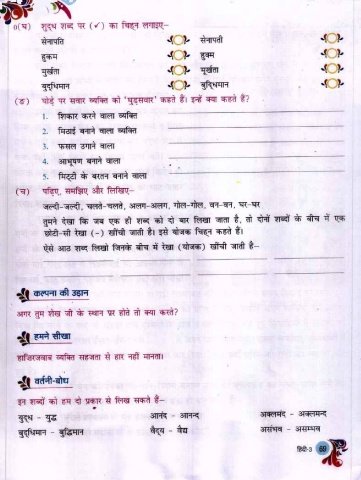 (घ) शुद्ध शब्द पर (✓) का चिह्न लगाइए–
सेनापति सेनापती
हुकम हुक्म
मुर्खता मूर्खता
बुद्धिमान बुधिमान
(ङ) घोड़े पर सवार व्यक्ति को 'घुड़सवार' कहते हैं। इन्हें क्या कहते हैं?
1. शिकार करने वाला व्यक्ति
2. मिठाई बनाने वाला व्यक्ति
3. फसल उगाने वाला
4. आभूषण बनाने वाला
5. मिट्टी के बरतन बनाने वाला
(च) पढ़िए, समझिए और लिखिए–
जल्दी-जल्दी, चलते-चलते, अलग-अलग, गोल-गोल, वन-वन, घर-घर
तुमने देखा कि जब एक ही शब्द को दो बार लिखा जाता है, तो दोनों शब्दों के बीच में एक
छोटी-सी रेखा (-) खींची जाती है। इसे योजक चिह्न कहते हैं।
ऐसे आठ शब्द लिखो जिनके बीच में रेखा (योजक) खींची जाती है–
कल्पना की उड़ान
अगर तुम शेख जी के स्थान पर होते तो क्या करते?
हमने सीखा
हाज़िरजवाब व्यक्ति सहजता से हार नहीं मानता।
वर्तनी-बोध
इन शब्दों को हम दो प्रकार से लिख सकते हैं–
युद्ध आनंद – आनन्द अक्लमंद – अक्लमन्द
बुद्धिमान – बुद्धिमान वैद्य – वैद्य असंभव – असम्भव
हिंदी-3 69